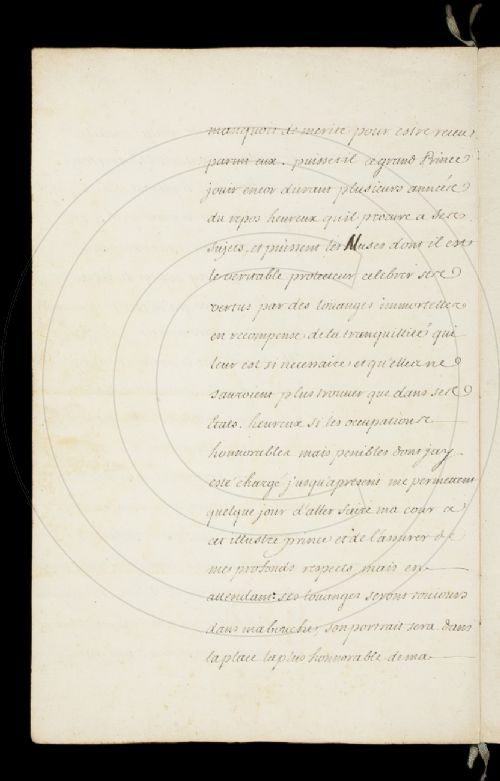 manquoit de merite pour estre receu
parmi eux. puisse til ce grand Prince
jouir encor durant plusieurs années
du repos heureux qu'il procure a ses
sujets, et puissent les Muses dont il est
le veritable protecteur, celebrer ses
vertus par des louanges immortelles
en recompense de la tranquillité qui
leur est si necessaire et qu'elles ne
sauroient plus trouver que dans ses
Etats. heureux si les occupations
honnorables mais penibles dont jay
esté chargé jusqu'apresent me permettent
quelque jour d'aller faire ma cour a
cet illustre prince et de l'assurer de
mes profonds respects, mais en
attendant ses louanges seront toujours
dans ma bouche, son portrait sera dans
la place la plus honnorable de ma